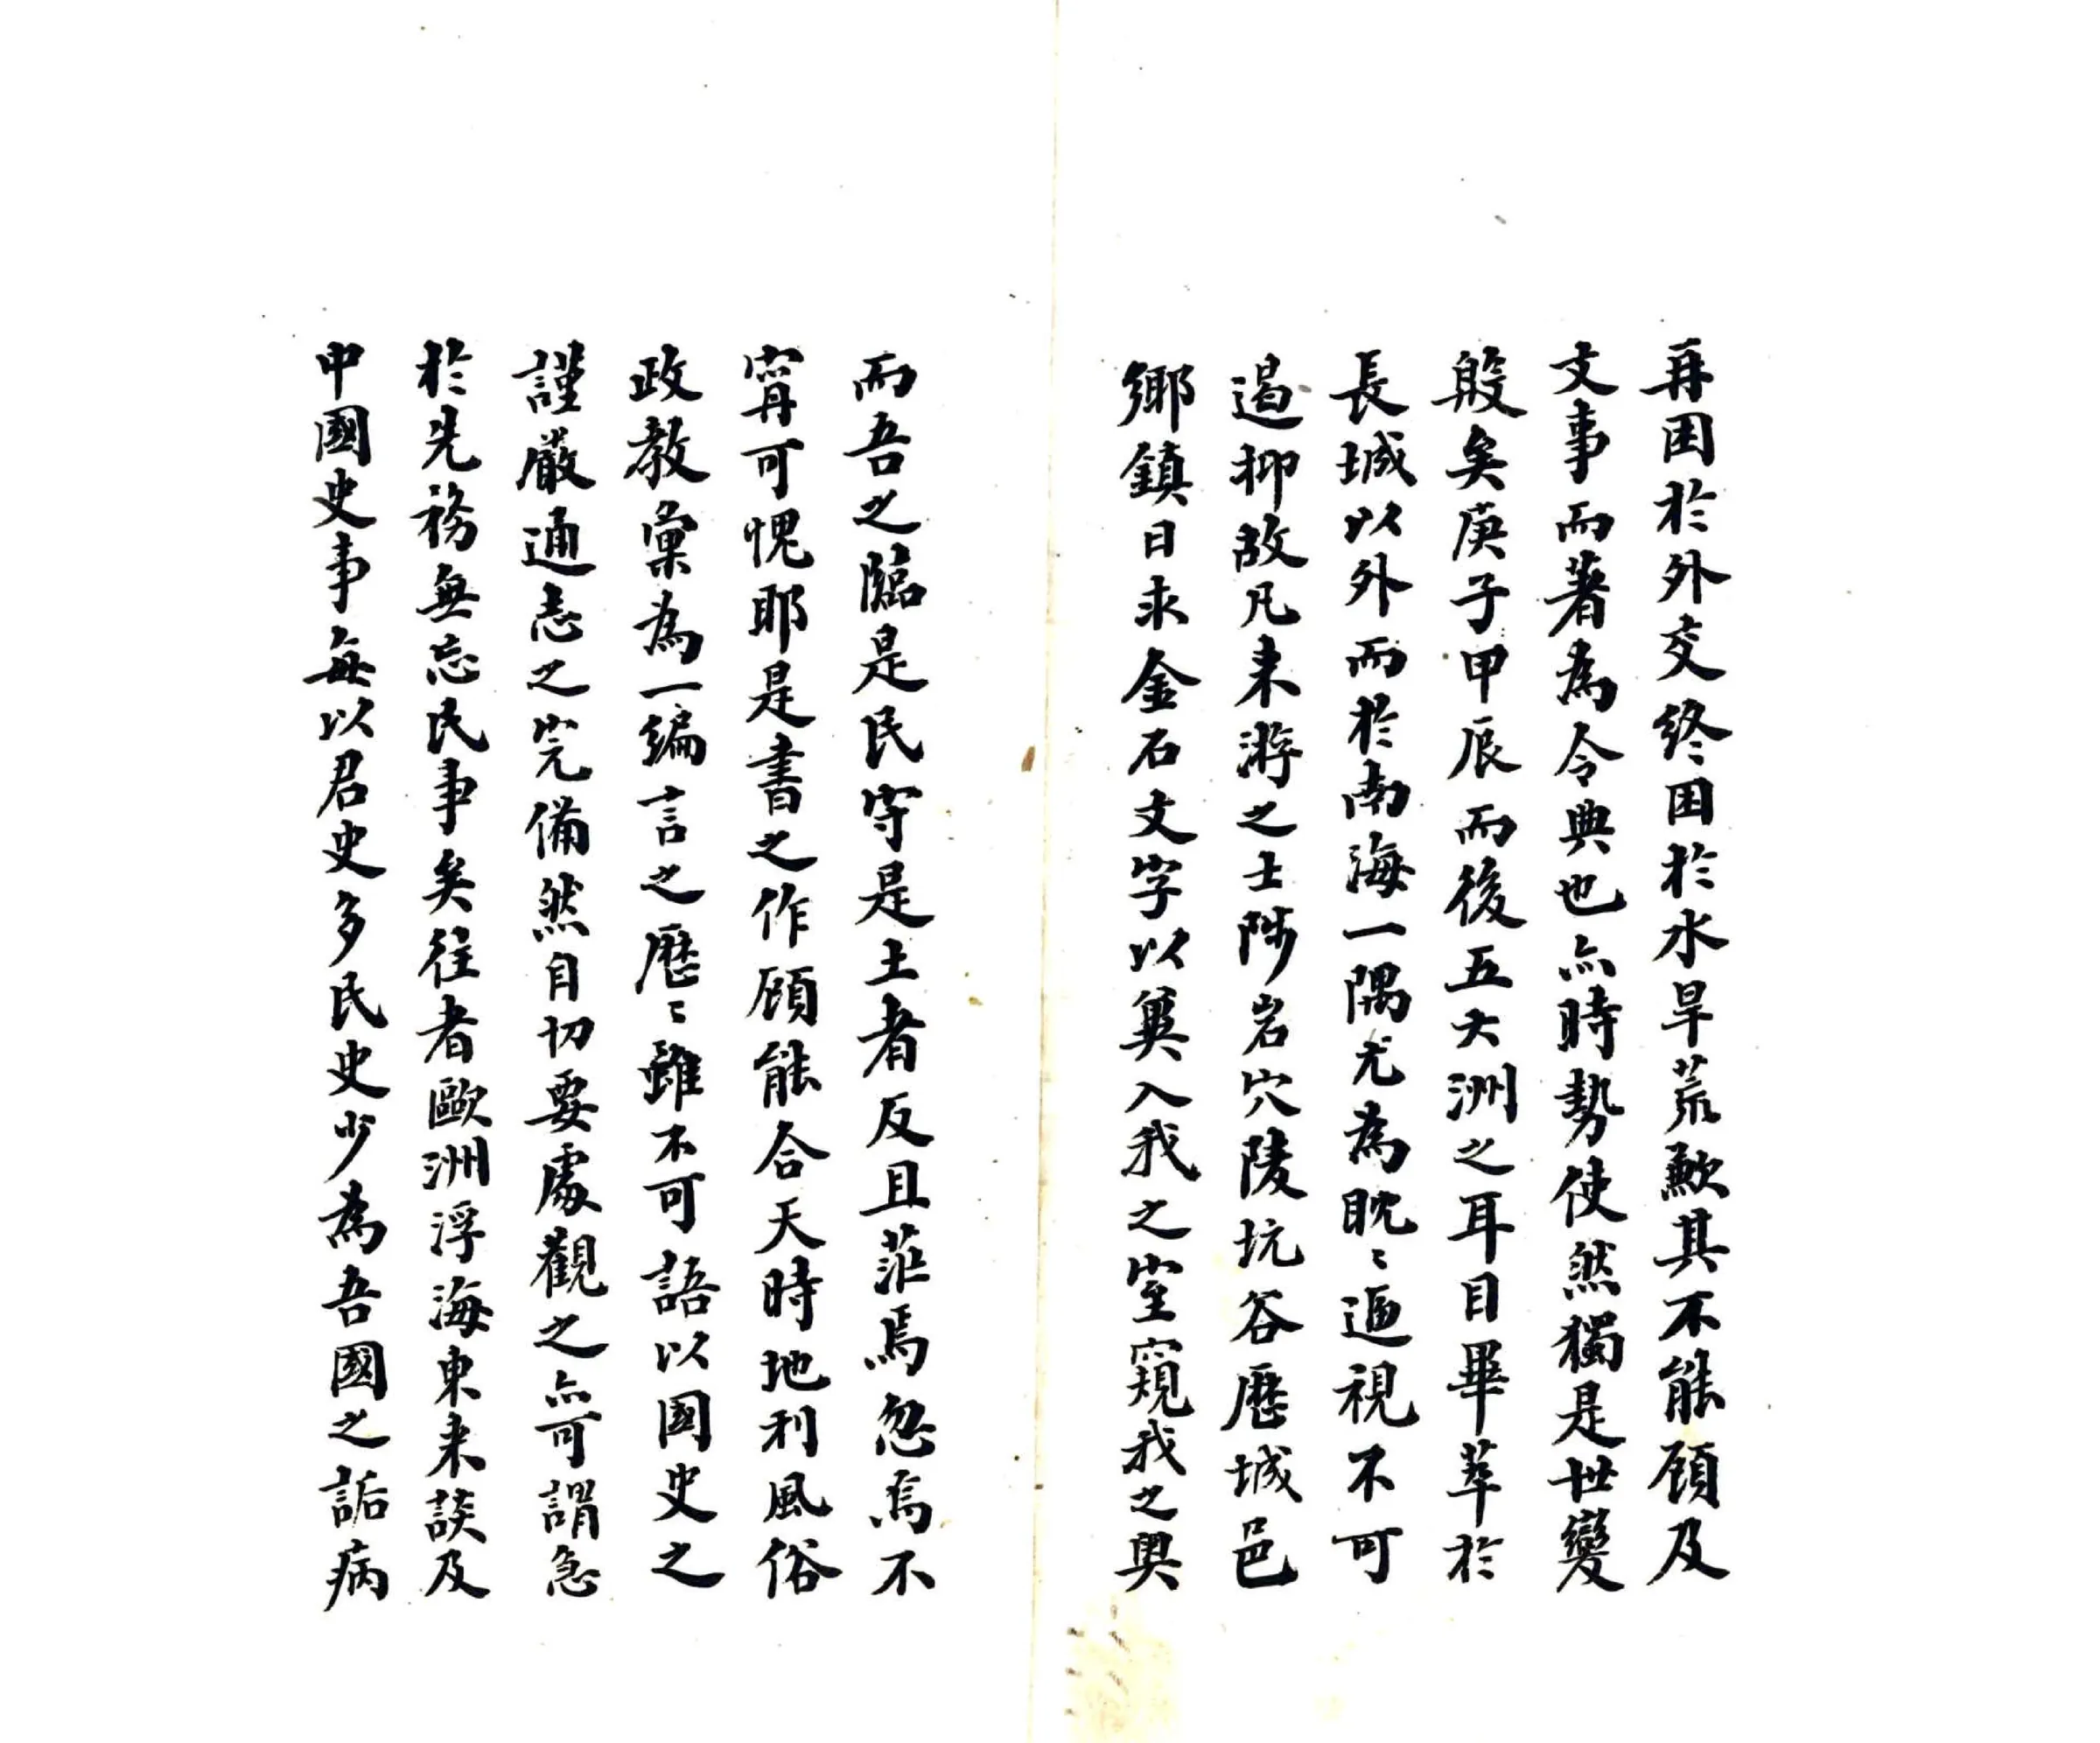 再困於外交終困於水旱荒歉其不能顧及
文事而著為令典也亦時勢使然獨是世變
殷矣庚子甲辰而後五大洲之耳目畢萃於
長城以外而於南海一隅尤為眈〻逼視不可
遏抑故凡来游之士陟岩穴陵坑谷歷城邑
鄉鎮日求金石文字以冀入我之室窺我之奧
而吾之臨是民守是土者反且茫焉忽焉不
甯可愧耶是書之作顧能合天時地利風俗
政教彙為一編言之歷〻雖不可語以國史之
謹嚴通志之完備然自切要處觀之亦可謂急
於先務無忘民事矣往者歐洲浮海東来談及
中國史事每以君史多民史少為吾國之詬病